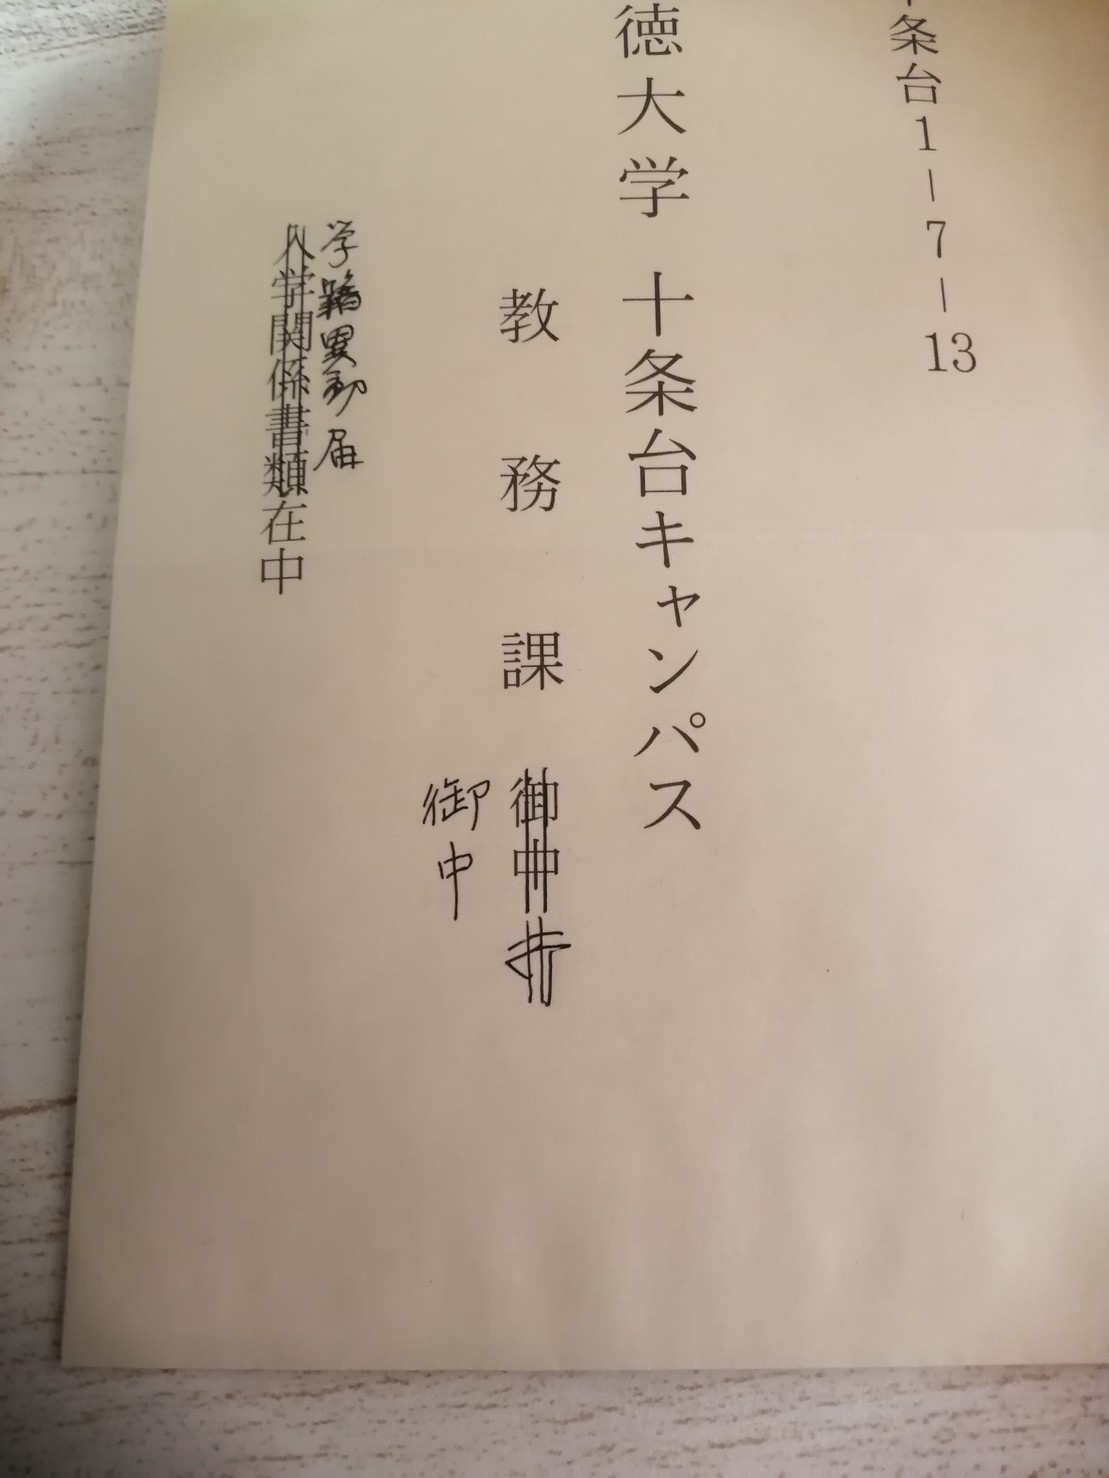 条台1-7-13
徳大学 十条台キャンパス
教務課 御中
御中
学籍異動届
入学関係書類在中